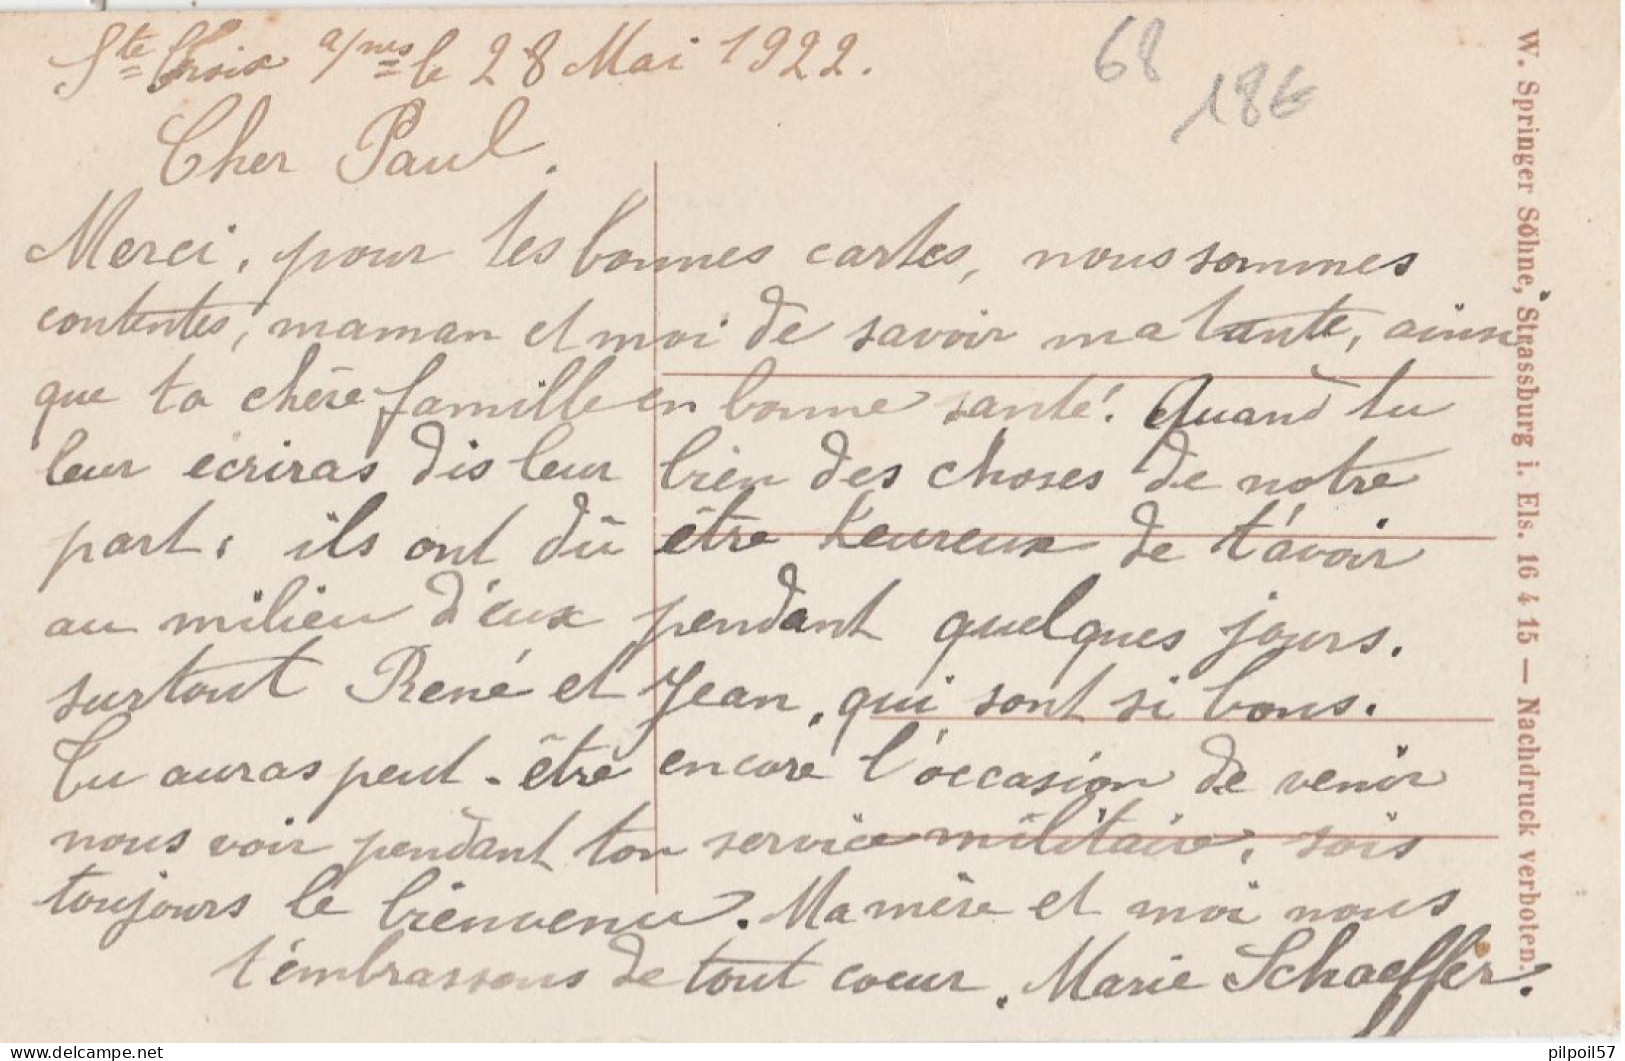 Ste Croix a/mes le 28 Mai 1922.
68
18€
Cher Paul.
Merci, pour tes bonnes cartes, nous sommes
contentes, maman et moi de savoir ma tante, ainsi
que ta chère famille en bonne santé. Quand tu
leur écriras dis leur bien des choses de notre
part, ils ont dû être heureux de t'avoir
au milieu d'eux pendant quelques jours.
surtout René et Jean, qui sont si bons.
Tu auras peut-être encore l'occasion de venir
nous voir pendant ton service militaire, sois
toujours le bienvenu. Ma mère et moi nous
t'embrassons de tout coeur. Marie Schaeffer.
W. Springer Söhne, Strassburg i. Els. 16 4 15 — Nachdruck verboten.
delcampe.net
pilpoil57